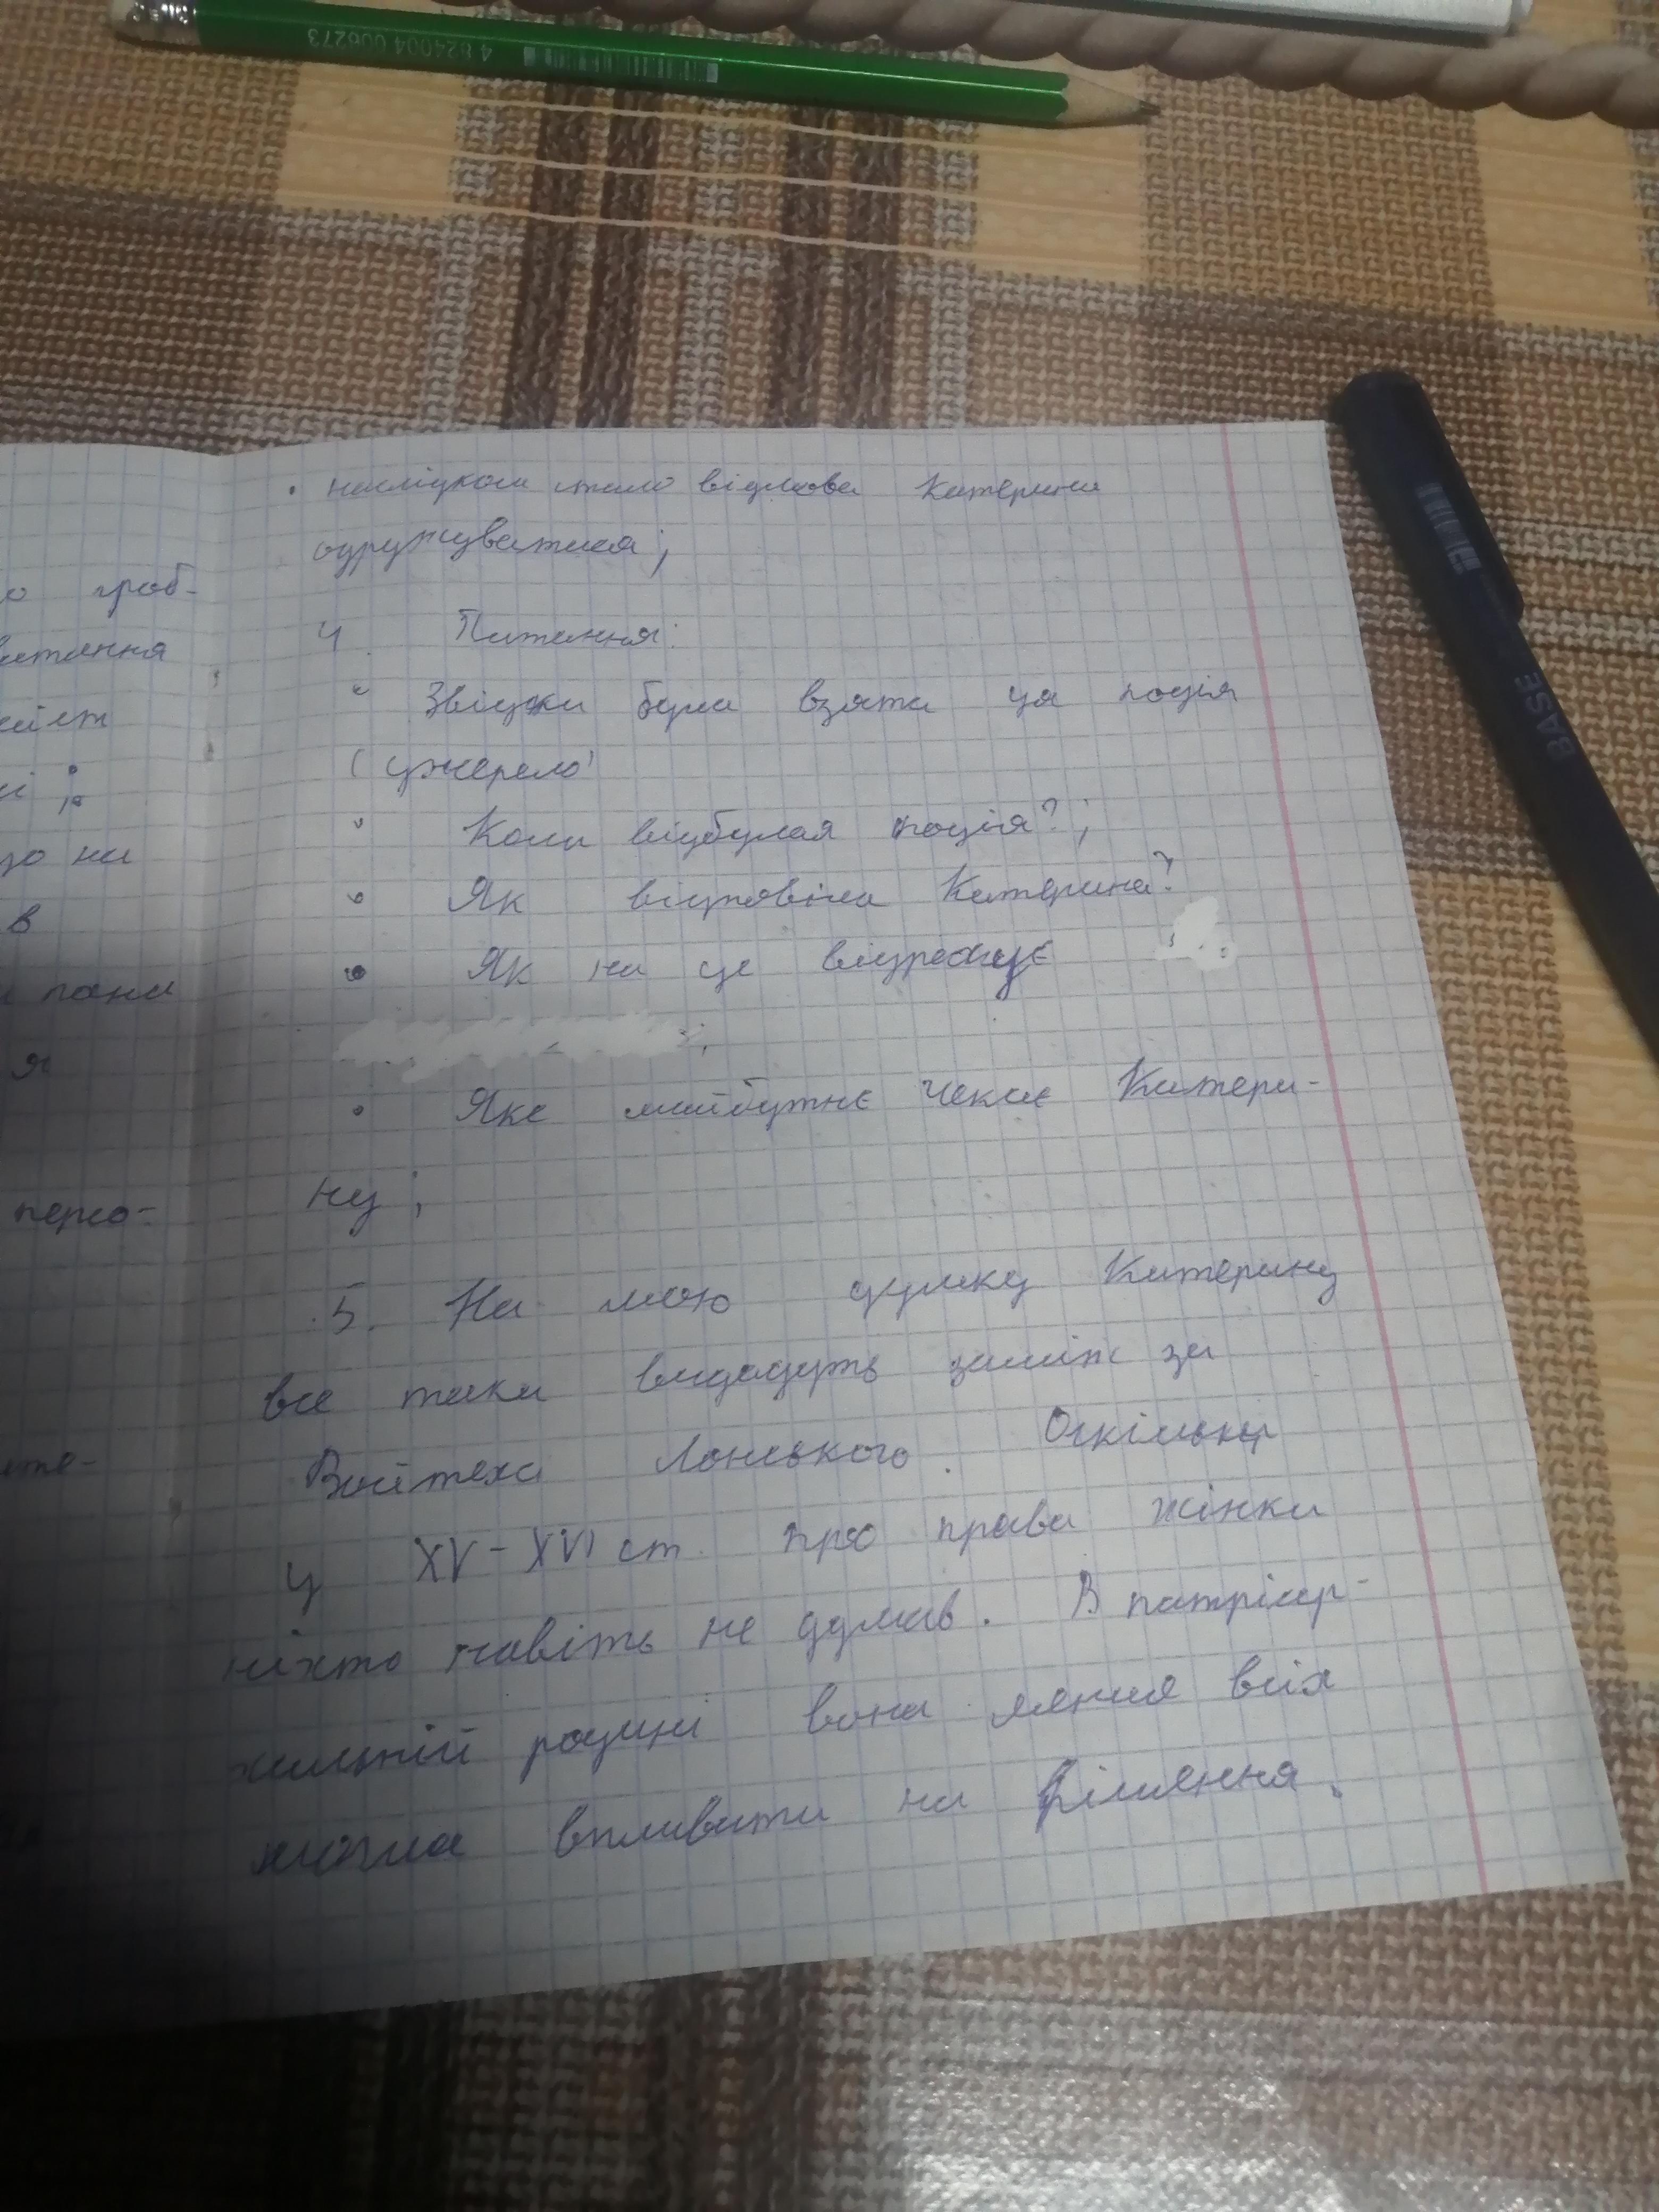 4 824004 006273
BASE
о гроб-
ні ;
що на
в
пани
я
персо-
• наслідком стало відмова Катерини
одружуватися;
4. Питання:
• Звідки була взята ця подія
(джерело)
• Коли відбулая подія?;
• Як відповіла Катерина?
• Як на це відреагує
;
• Яке майбутнє чекає Катери-
ну;
5. На мою думку Катерину
все таки видадуть заміж за
Войтеха Лонського. Оскільки
у XV-XVI ст. про права жінки
ніхто навіть не думав. В патріар-
хальній родині вона менше всіх
могла впливати на рішення.